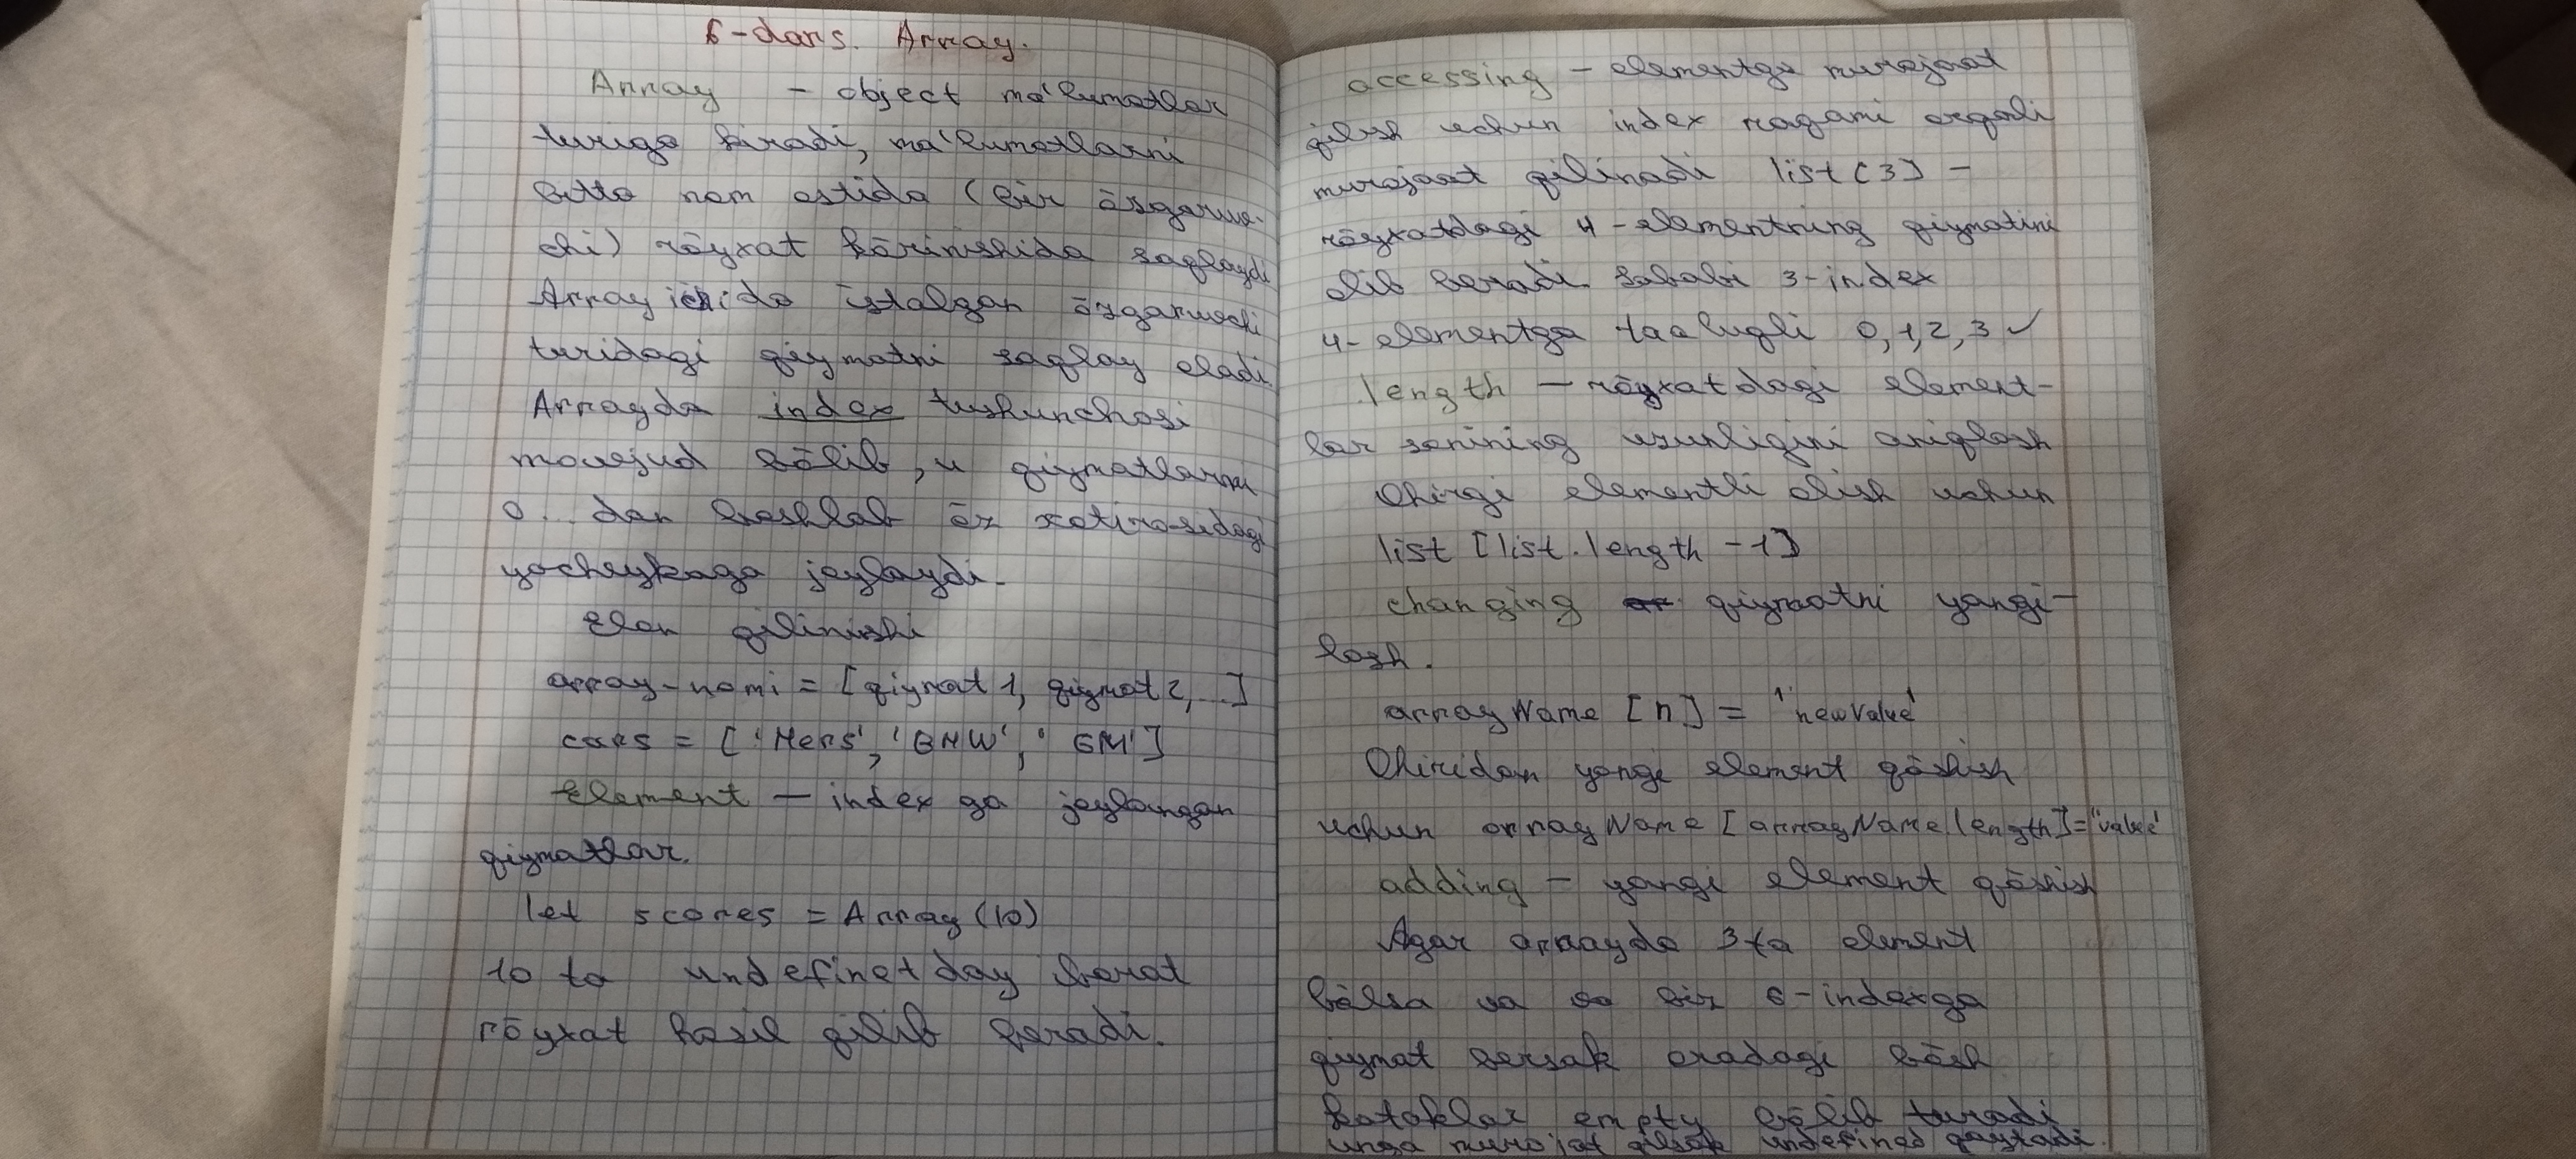 6-dars. Array.
Array - object ma'lumotlar
turiga kiradi, ma'lumotlarni
bitta nom ostida (bir ōzgaruv-
chi) rōyxat kōrinishida saqlaydi
Array ichida istalgan ōzgaruvchi
turidagi qiymatni saqlay oladi.
Arrayda index tushunchasi
mavjud bōlib, u qiymatlarni
0... dan boshlab ōz xotira-sidagi
yacheykaga joylaydi.
Elon qilinishi
array-nomi = [qiymat 1, qiymat 2, ...]
cars = ['Mers', 'BMW', 'GM']
Element - index ga joylangan
qiymatlar.
let scores = Array(10)
10 ta undefinet day iborat
rōyxat hosil qilib beradi.
accessing - elementga murojaat
qilish uchun index raqami orqali
murojaat qilinadi list[3] -
rōyxatdagi 4-elementning qiymatini
olib beradi. Sababi 3-index
4-elementga taaluqli 0,1,2,3 ✓
.length - rōyxatdagi element-
lar sonining uzunligini aniqlash
Ohirgi elementli olish uchun
list [list.length -1]
changing qiymatni yangi-
lash.
arrayName [n] = 'newValue'
Ohiridan yangi element qōshish
uchun arrayName [arrayName.length]='value'
adding - yangi element qōshish
Agar arrayda 3ta element
bōlsa va biz 6-indexga
qiymat bersak oradagi bōsh
kataklar empty bōlib turadi
unga murojat qilsak undefined qaytadi.